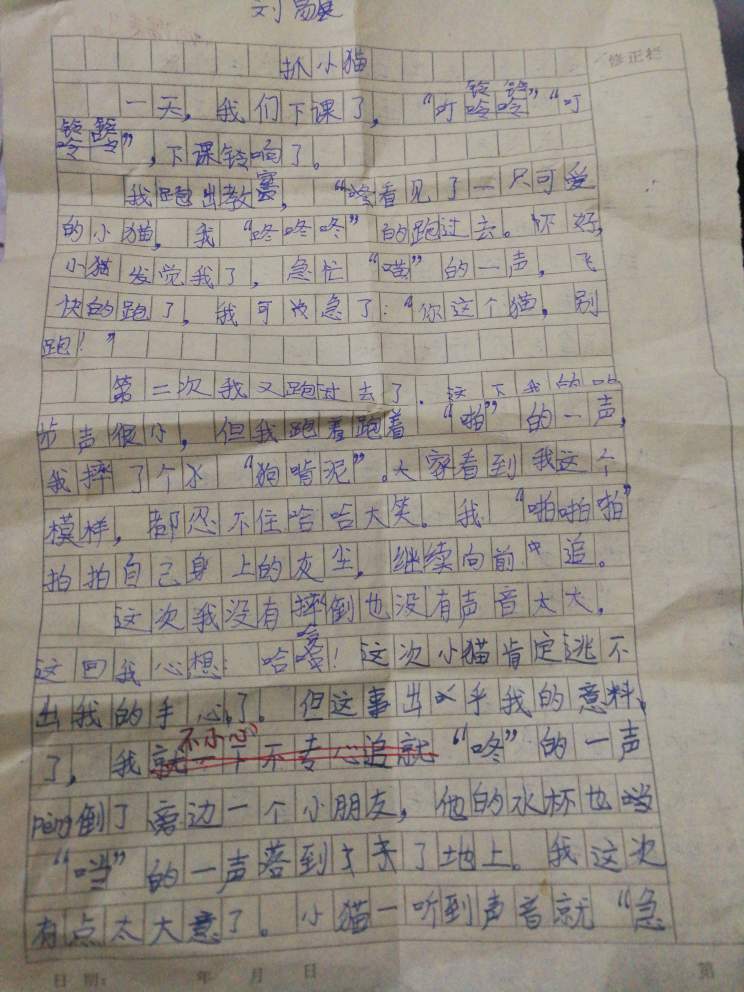 刘
抓小猫
修正栏
一天，我们下课了，“叮铃铃”“叮
铃铃”，下课铃响了。
我跑出教室，“咚看见了一只可爱
的小猫，我“咚咚咚”的跑过去。怀好，
小猫发觉我了，急忙“喵”的一声，飞
快的跑了，我可急了：“你这个猫，别
跑！”
第二次我又跑过去了．这下我的
步声很小，但我跑着跑着“啪”的一声，
我摔了个“狗啃泥”。大家看到我这个
模样，都忍不住哈哈大笑。我“啪啪啪”
拍拍自己身上的灰尘，继续向前追。
这次我没有摔倒也没有声音太大，
这回我心想：哈哈！这次小猫肯定逃不
出我的手心了。但这事出乎我的意料
了，我不小心“咚”的一声
peng倒了旁边一个小朋友，他的水杯也当
“当”的一声落到了地上。我这次
有点太大意了。小猫一听到声音就“急
日期： 年 月 日 第